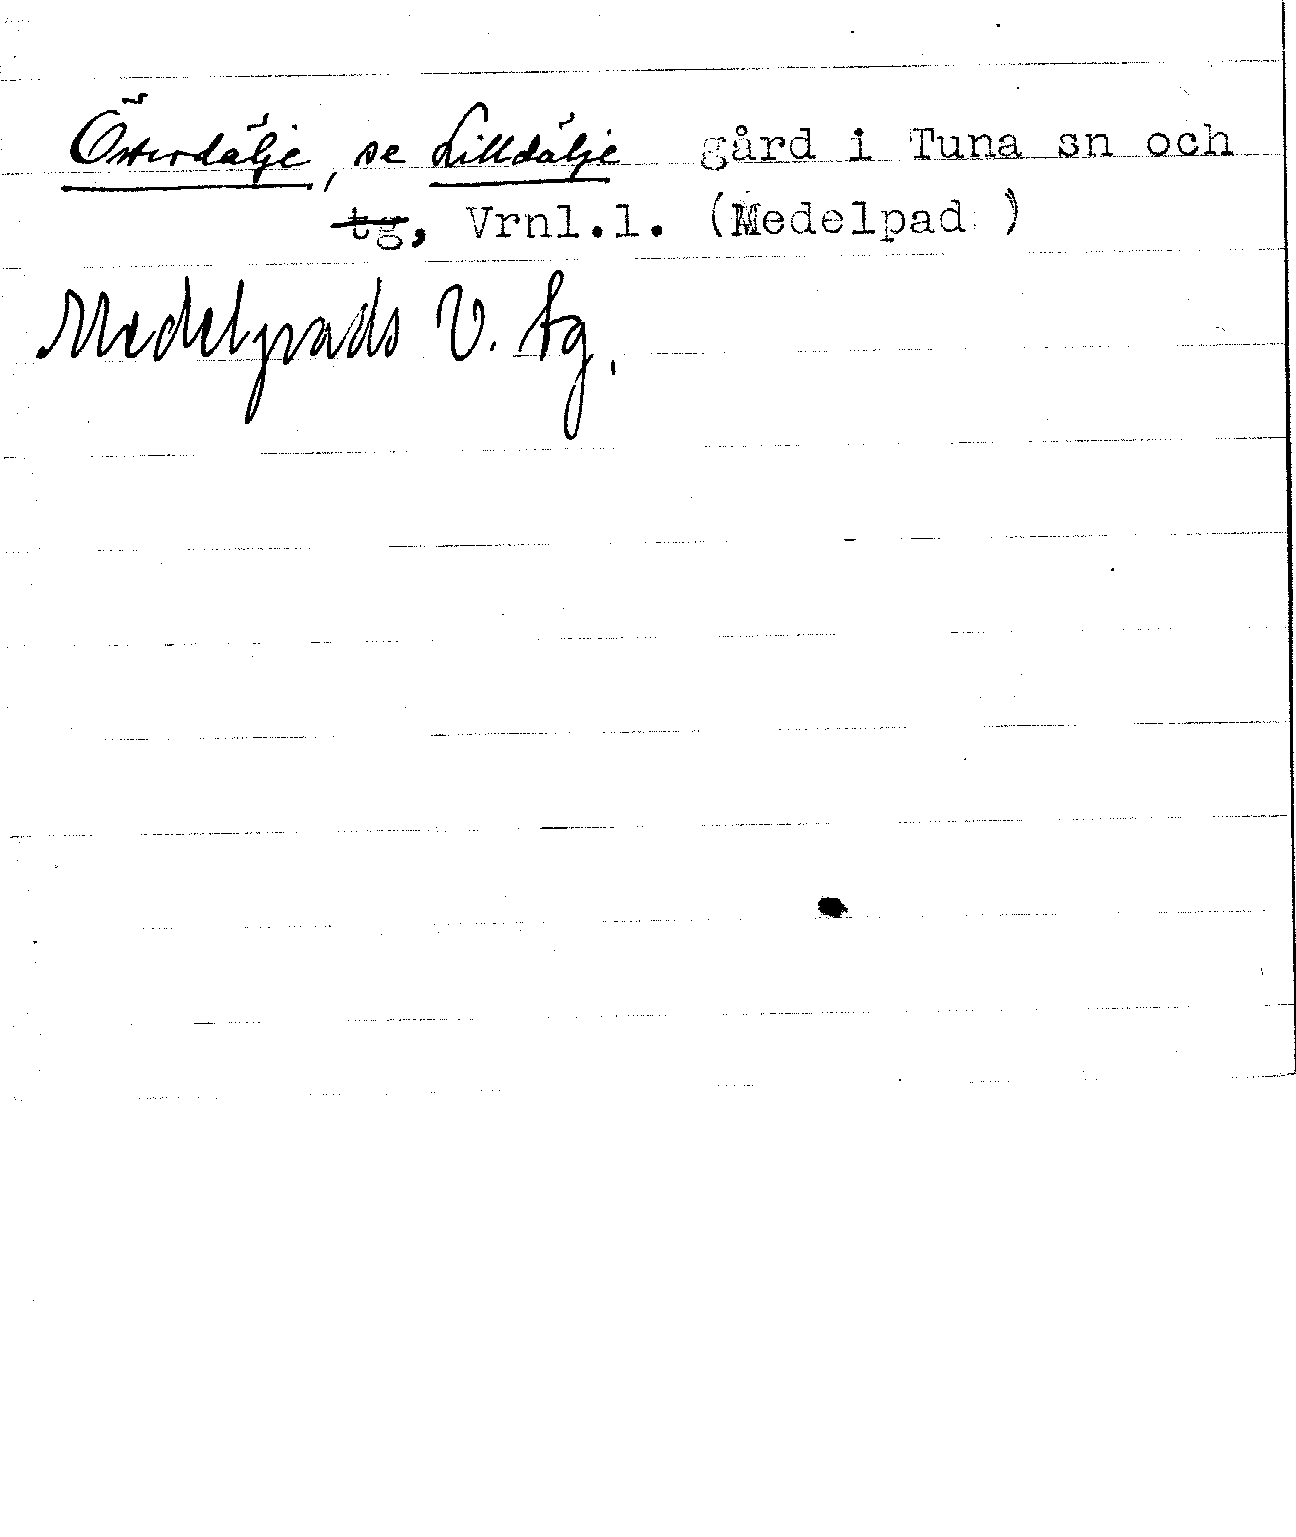 Österdälje, se Lilldälje gård i Tuna sn och
tg, Vrnl.l. (Medelpad )
Medelpads V. tg,